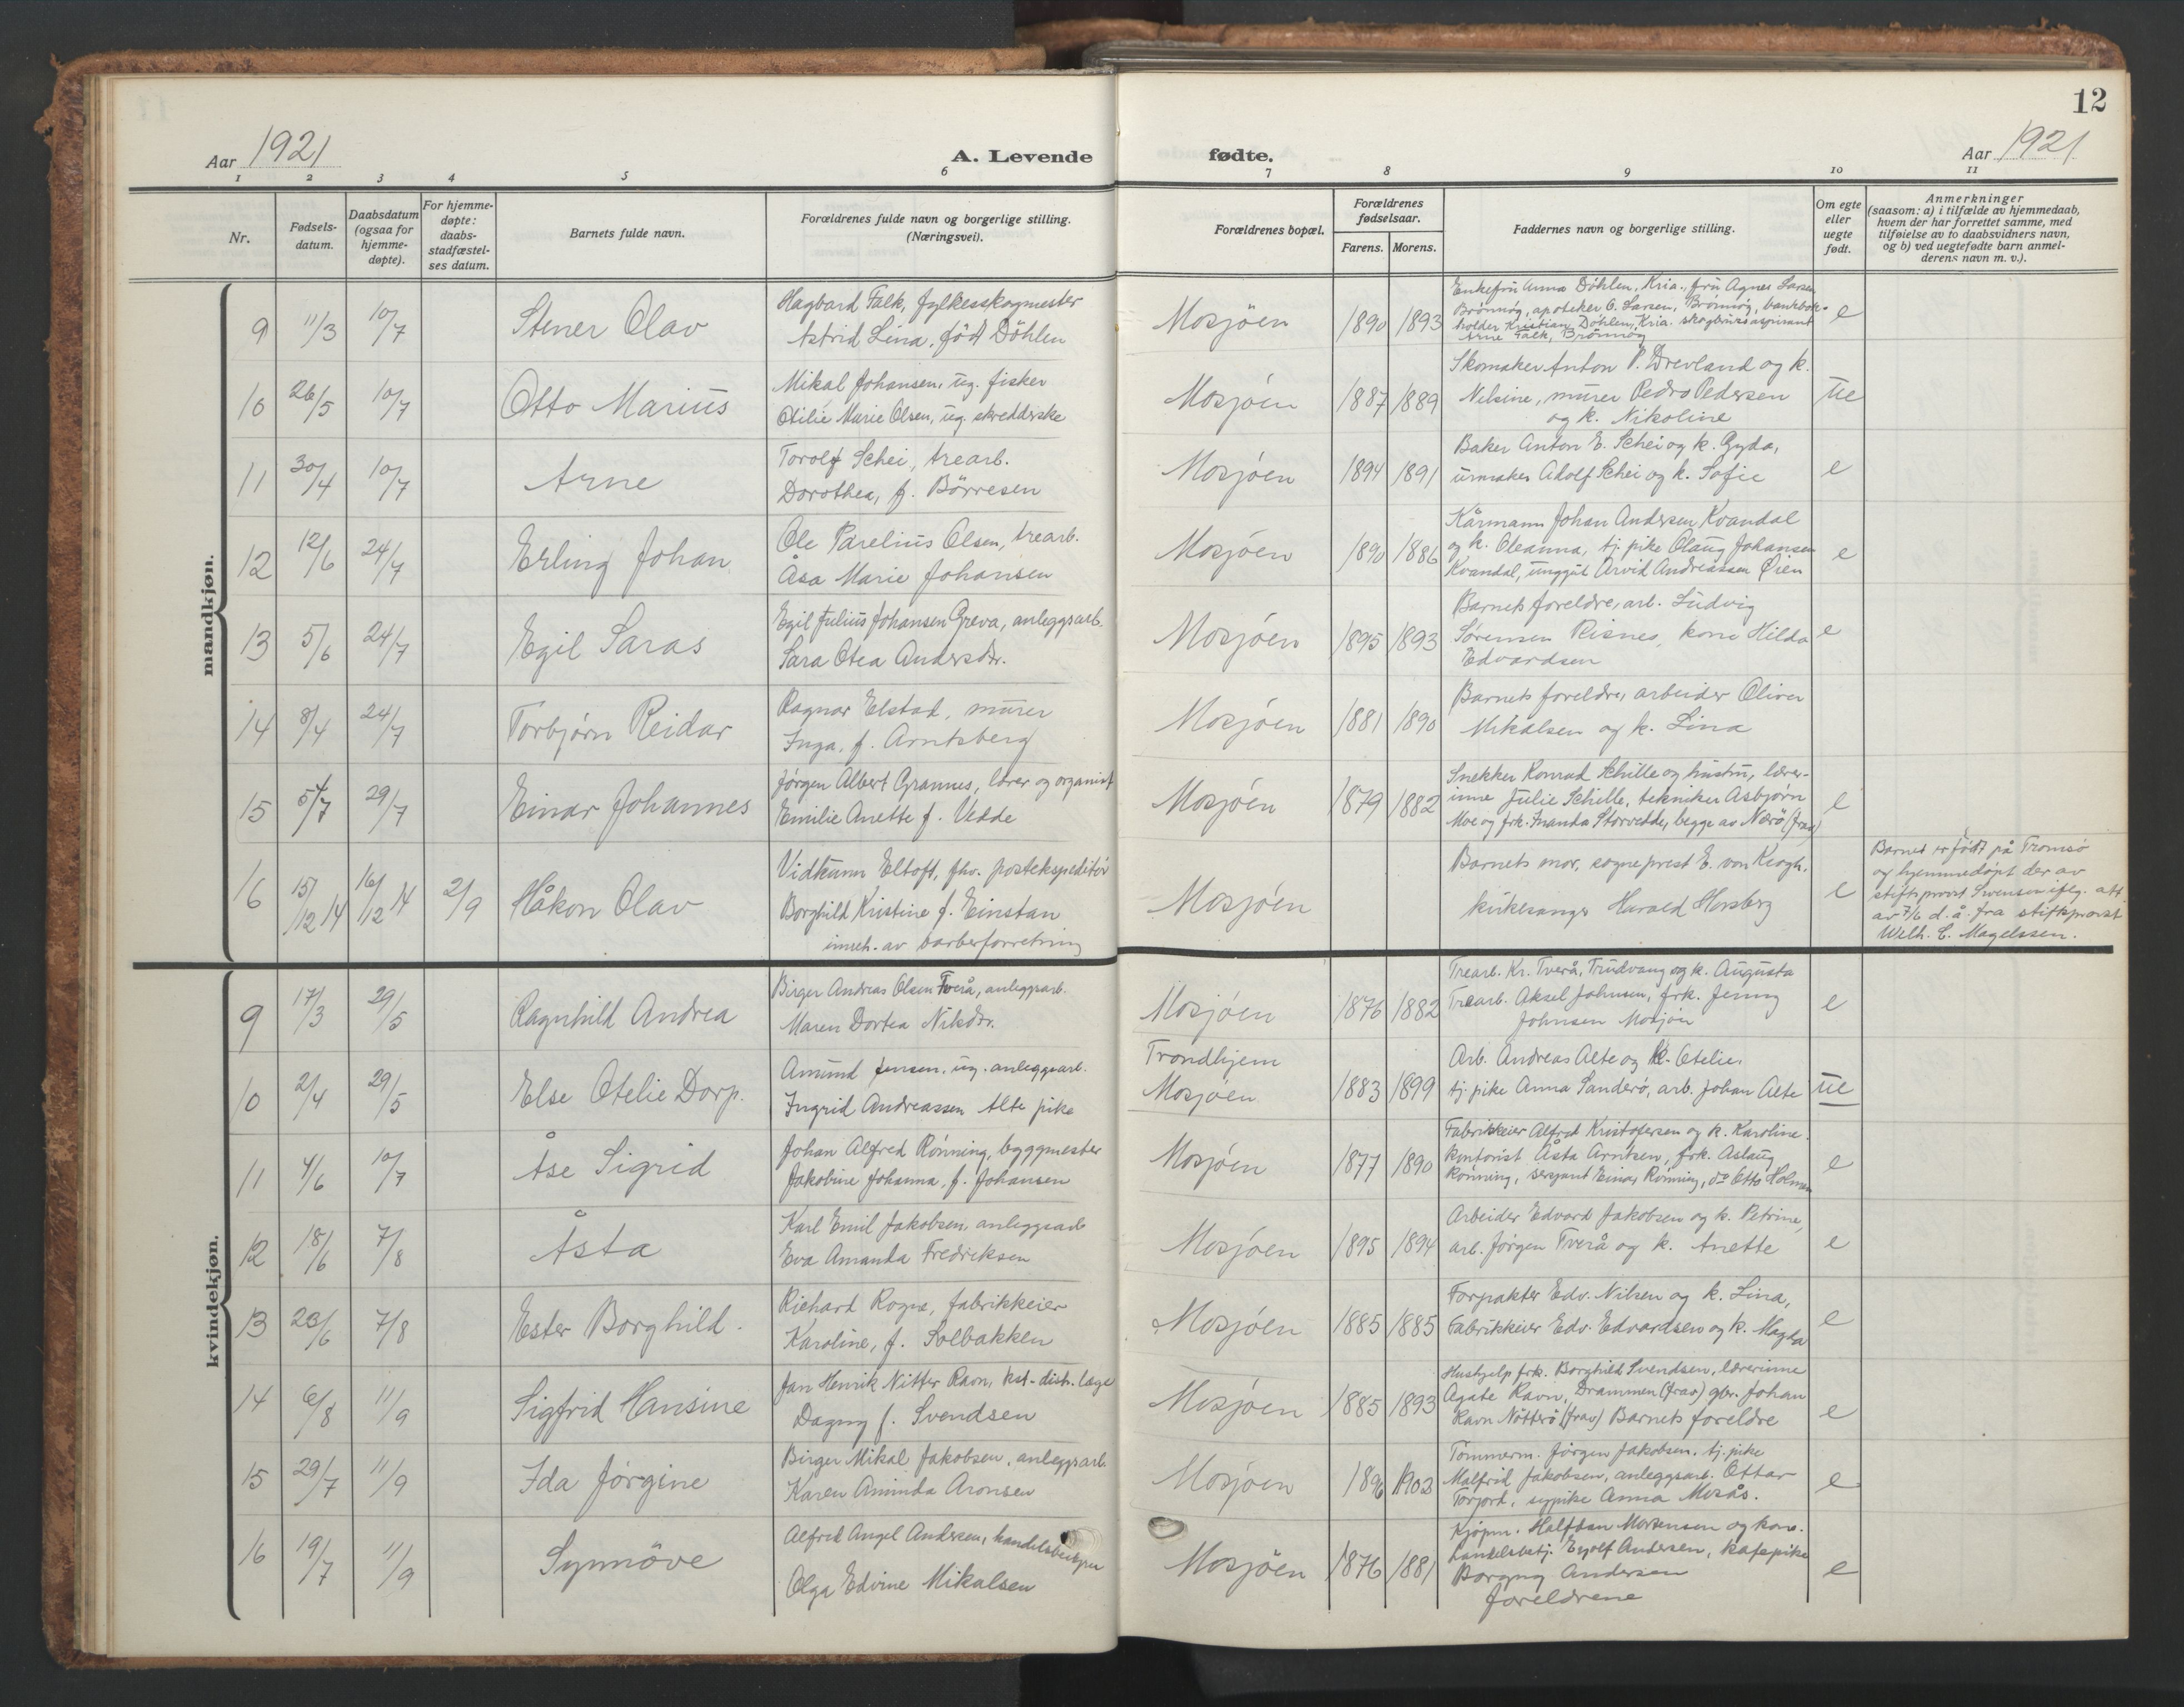 12
Aar 1921
A. Levende fødte.
Aar 1921
1 2 3 4 5 6 7 8 9 10 11
Nr.
Fødsels-
datum.
Daabsdatum
(ogsaa for
hjemme-
døpte).
For hjemme-
døpte:
daabs-
stadfæstel-
ses datum.
Barnets fulde navn.
Forældrenes fulde navn og borgerlige stilling.
(Næringsvei).
Forældrenes bopæl.
Forældrenes
fødselsaar.
Farens. Morens.
Faddernes navn og borgerlige stilling.
Om egte
eller
uegte
født.
Anmerkninger
(saasom: a) i tilfælde av hjemmedaab,
hvem der har forrettet samme, med
tilføielse av to daabsvidners navn,
og b) ved uegtefødte barn anmel-
derens navn m. v.).
mandkjøn.
9 11/3 10/7 Stener Olav
Hagbard Falk, fylkesskogmester
Astrid Lina, född Döhlen
Mosjöen 1890 1893
Enkefrü Anna Döhlen, Kria., frü Agnes Larsen
Brönnög, apoteker O. Larsen, Brönnög, bankbok-
holder Kristian Döhlen, Kria. skogbrüksaspirant
Arne Falk, Brönnög
e
10 26/5 10/7 Otto Mariüs
Mikal Johansen, üg. fisker
Otilie Marie Olsen, üg. skredderske
Mosjöen 1887 1889
Skomaker Anton P. Drevland og k.
Nilsine, mürer Pedro Pedersen
og k. Nikoline
üe
11 30/4 10/7 Arne
Torolf Schei, trearb.
Dorothea, f. Börresen
Mosjöen 1894 1891
Baker Anton E. Schei og k. Gyda,
ürmaker Adolf Schei og k. Sofie
e
12 12/6 24/7 Erling Johan
Ole Pareliüs Olsen, trearb.
Åsa Marie Johansen
Mosjöen 1890 1886
Kårmann Johan Andersen Kvandal
og k. Oleanna, tj. pike Olaüg Johansen
Kvandal, ünggüt Arvid Andreassen Øien
e
13 5/6 24/7 Egil Saras
Egil Jüliüs Johansen Greva, anleggsarb.
Sara Otea Andersdtr.
Mosjöen 1895 1893
Barnets foreldre, arb. Lüdvig
Sørensen Risnes, kone Hilda
Edvardsen
e
14 8/4 24/7 Torbjørn Reidar
Ragnar Elstad, mürer
Inga, f. Arntsberg
Mosjöen 1881 1890
Barnets foreldre, arbeider Oliver
Mikalsen og k. Lina
15 5/7 29/7 Einar Johannes
Jörgen Albert Grannes, lærer og organist
Emilie Anette f. Vedde
Mosjöen 1879 1882
Snekker Konrad Schille og hüstrü, lærer-
inne Jülie Schille, tekniker Asbjørn
Moe og frk. Inanda Storvedde, begge av Nærö (frav)
e
16 15/12 14 16/12 14 2/9 Håkon Olav
Vidkünn Eltoft, fhv. postekspeditör
Borghild Kristine f. Einstan
inneh. av barberforretning
Mosjöen
Barnets mor, sogneprest E. von Krogh,
kirkesanger Harald Horsberg
e
Barnet er født på Tromsø
og hjemmedøpt der av
stiftsprovst Svensen iflg. att.
av 7/6 d. å. fra stiftsprovst
Wilh. C. Magelssen.
kvindekjøn.
9 17/3 29/5 Ragnhild Andrea
Birger Andreas Olsen Tverå, anleggsarb.
Maren Dortea Nilsdtr.
Mosjöen 1876 1882
Trearb. Kr. Tverå, Trüdvang og k. Aügüsta
Trearb. Aksel Johnsen, frk. Jenny
Johnsen Mosjöen
e
10 2/4 29/5 Else Otelie Dorp.
Amünd Jensen, üg. anleggsarb.
Ingrid Andreassen Alte pike
Trondhjem
Mosjöen 1883 1899
Arb. Andreas Alte og k. Otelie,
tj. pike Anna Sanderö, arb. Johan Alte
üe
11 4/6 10/7 Åse Sigrid
Johan Alfred Rönning, byggmester
Jakobine Johanna, f. Johansen
Mosjöen 1877 1890
Fabrikkeier Alfred Kristofersen og k. Karoline.
kontorist Åsta Arntsen, frk. Aslaüg
Rönning, sersjant Einar Rönning, do Otto Holmen
e
12 18/6 7/8 Åsta
Karl Emil Jakobsen, anleggsarb
Eva Amanda Fredriksen
Mosjöen 1895 1894
Arbeider Edvard Jakobsen og k. Petrine,
arb. Jörgen Tverå og k. Anette
e
13 26/6 7/8 Ester Borghild.
Richard Rogne, fabrikkeier
Karoline, f. Solbakken
Mosjöen 1885 1885
Forpakter Edv. Nilsen og k. Lina,
Fabrikkeier Edv. Edvardsen og k. Magda
e
14 6/8 11/9 Sigfrid Hansine
Jan Henrik Nitter Ravn, kst. distr. læge
Dagny f. Svendsen
Mosjöen 1885 1893
Hushjelp frk. Borghild Svendsen, lærerinne
Agate Ravn, Drammen (frav) gbr. Johan
Ravn Nötterö (frav) Barnets foreldre
e
15 29/7 11/9 Ida Jörgine
Birger Mikal Jakobsen, anleggsarb.
Karen Aminda Aronsen
Mosjöen 1896 1902
Tömmerm. Jörgen Jakobsen, tj. pike
Malfrid Jakobsen, anleggsarb. Ottar
Forjord, sypike Anna Mosås.
e
16 19/7 11/9 Synnöve
Alfred Angel Andersen, handelsbestyrer
Olga Edvine Mikalsen
Mosjöen 1876 1881
Kjöpm. Halfdan Mortensen og kone.
handelsbetj. Eyolf Andersen, kafepike
Borgny Andersen
foreldrene
e